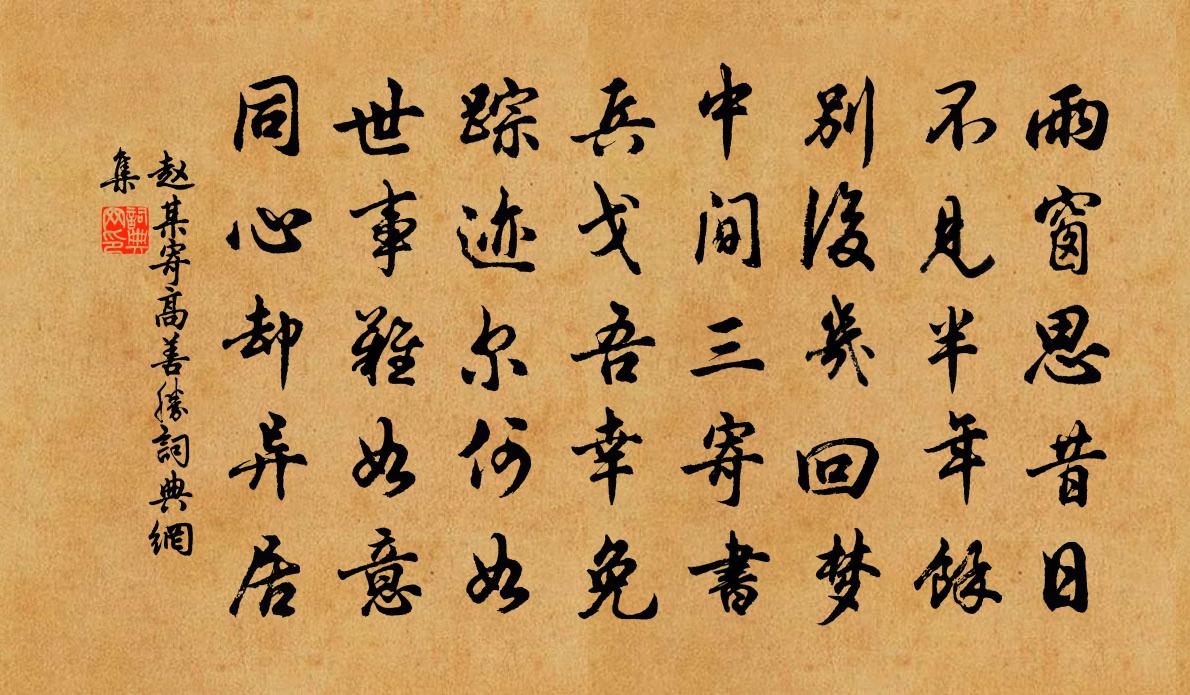 雨窗思昔日
不见半年餘
别後幾回梦
中间三寄書
兵戈吾幸免
踪迹尔何如
世事難如意
同心却异居
赵某寄高善勝詞典網
集
詞典
网印